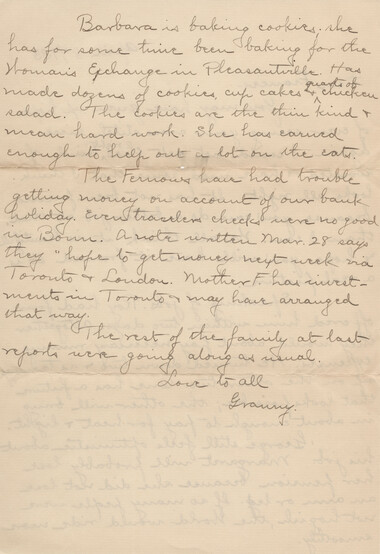 Barbara is baking cookies. She
has for some time been baking for the
Woman's Exchange in Pleasantville. Has
made dozens of cookies cup cakes & quarts of chicken
salad. The cookies are the thin kind &
mean hard work. She has earned
enough to help out a lot on the eats.
The Fernows have had trouble
getting money on account of our bank
holiday. Even travelers checks were no good
in Bonn. A note written Mar. 28 says
they "hope to get money next week via
Toronto & London. Mother F. has invest-
ments in Toronto & may have arranged
that way.
The rest of the family at last
reports were going along as usual.
Love to all
Granny.